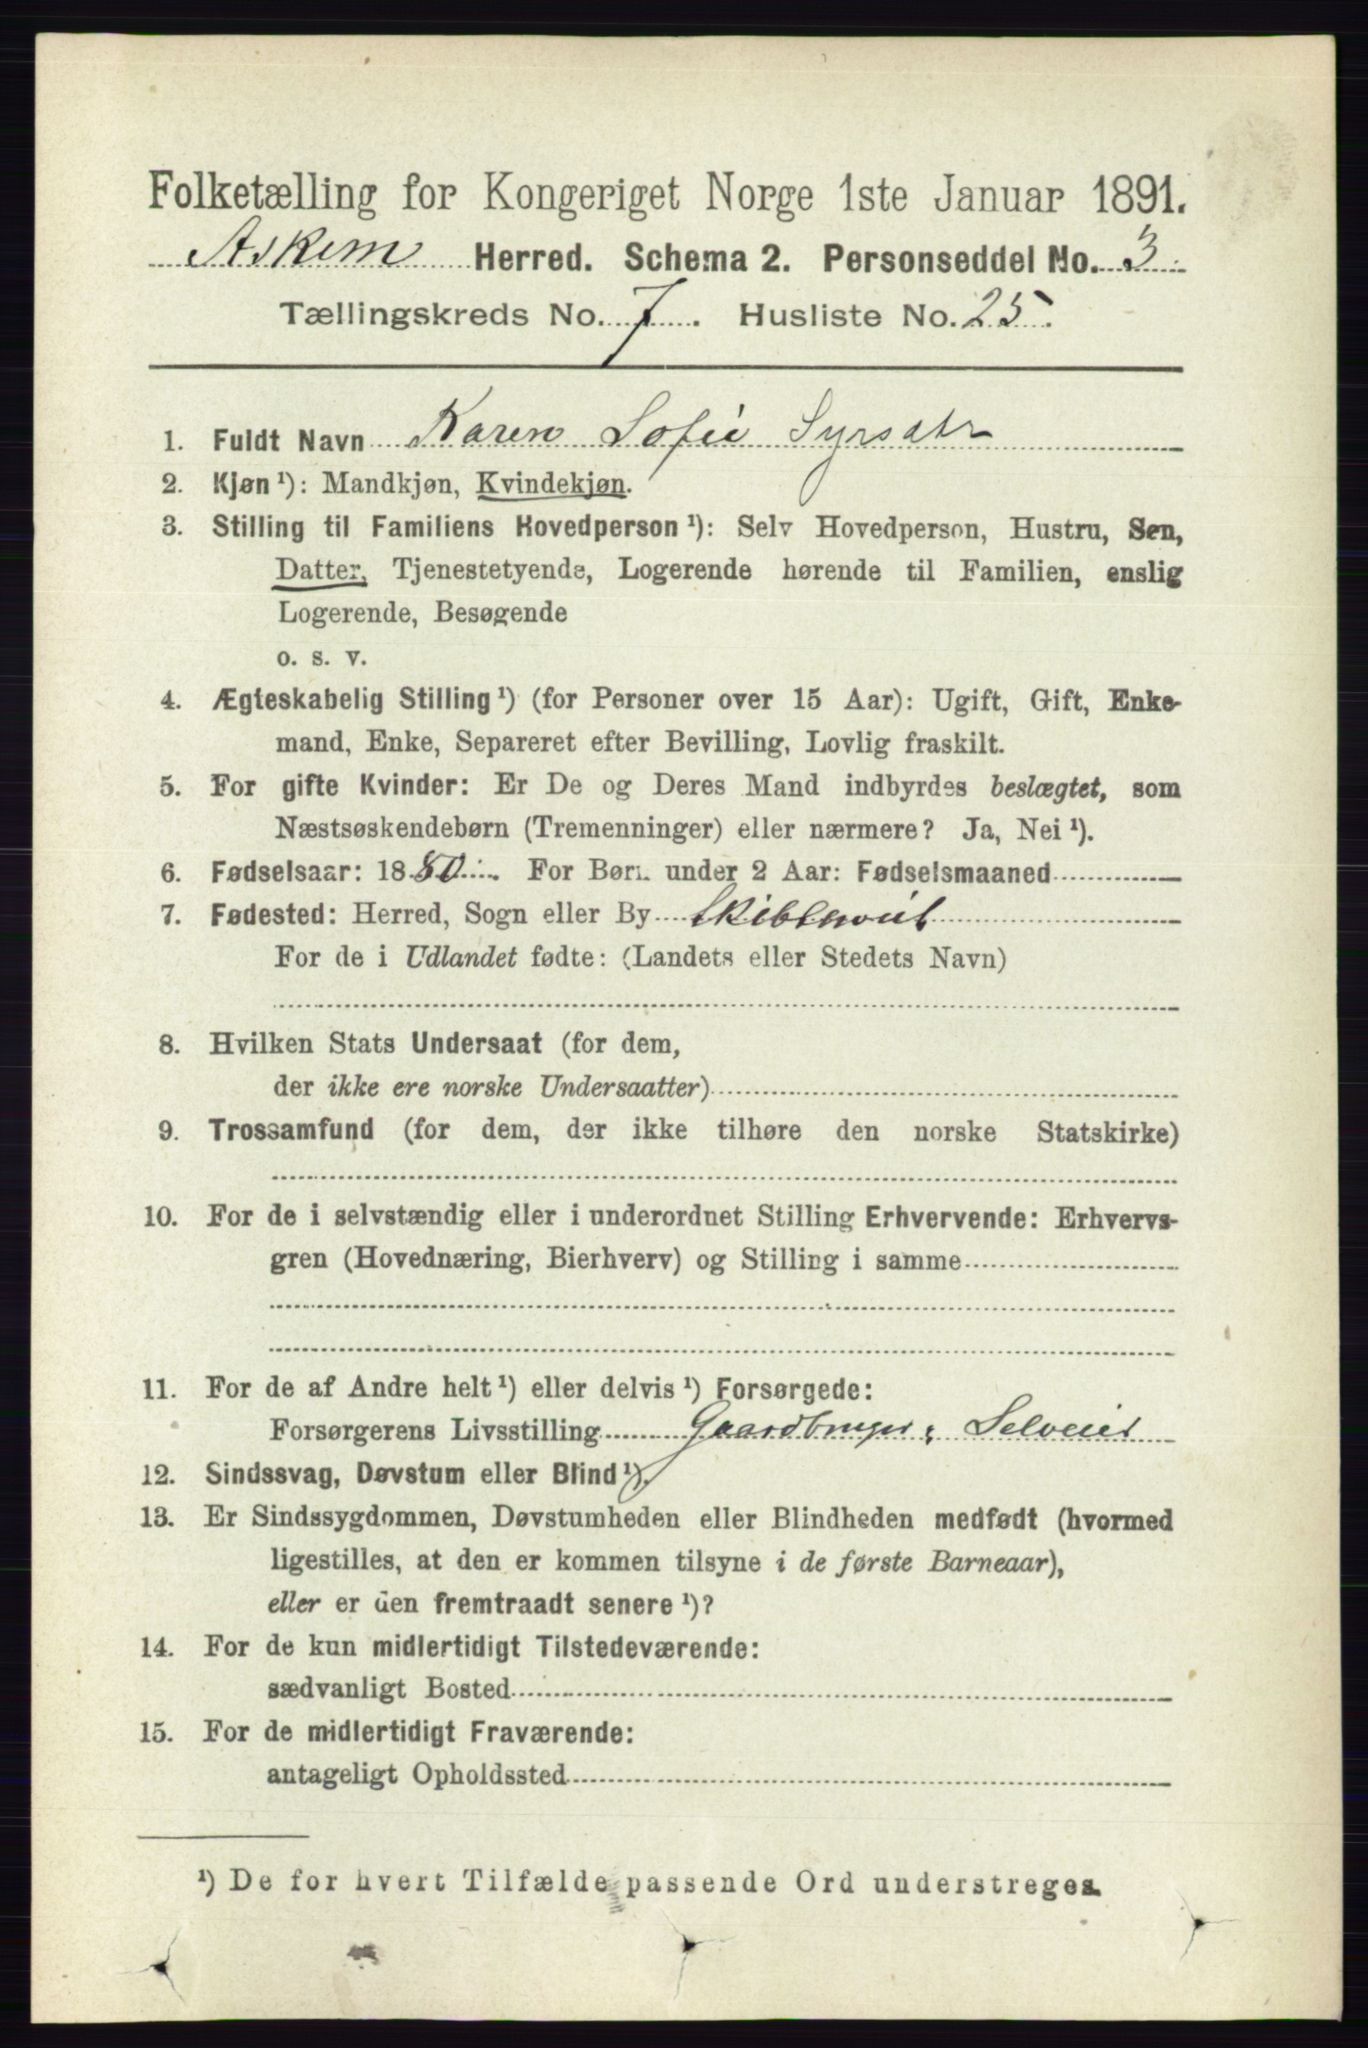 Folketælling for Kongeriget Norge 1ste Januar 1891.
Askim Herred. Schema 2. Personseddel No. 3
Tællingskreds No. 7. Husliste No. 25.
1. Fuldt Navn Karen Sofie
2. Kjøn ¹): Mandkjøn, Kvindekjøn.
3. Stilling til Familiens Hovedperson ¹): Selv Hovedperson, Hustru, Søn,
Datter, Tjenestetyende, Logerende hørende til Familien, enslig
Logerende, Besøgende
o. s. v.
4. Ægteskabelig Stilling ¹) (for Personer over 15 Aar): Ugift, Gift, Enke-
mand, Enke, Separeret efter Bevilling, Lovlig fraskilt.
5. For gifte Kvinder: Er De og Deres Mand indbyrdes beslægtet, som
Næstsøskendebørn (Tremenninger) eller nærmere? Ja, Nei ¹).
6. Fødselsaar: 1880. For Børn under 2 Aar: Fødselsmaaned
7. Fødested: Herred, Sogn eller By
For de i Udlandet fødte: (Landets eller Stedets Navn)
8. Hvilken Stats Undersaat (for dem,
der ikke ere norske Undersaatter)
9. Trossamfund (for dem, der ikke tilhøre den norske Statskirke)
10. For de i selvstændig eller i underordnet Stilling Erhvervende: Erhvervs-
gren (Hovednæring, Bierhverv) og Stilling i samme
11. For de af Andre helt ¹) eller delvis ¹) Forsørgede:
Forsørgerens Livsstilling Gaardbruger, Selveier
12. Sindssvag, Døvstum eller Blind ¹).
13. Er Sindssygdommen, Døvstumheden eller Blindheden medfødt (hvormed
ligestilles, at den er kommen tilsyne i de første Barneaar),
eller er den fremtraadt senere ¹)?
14. For de kun midlertidigt Tilstedeværende:
sædvanligt Bosted
15. For de midlertidigt Fraværende:
antageligt Opholdssted
¹) De for hvert Tilfælde passende Ord understreges.